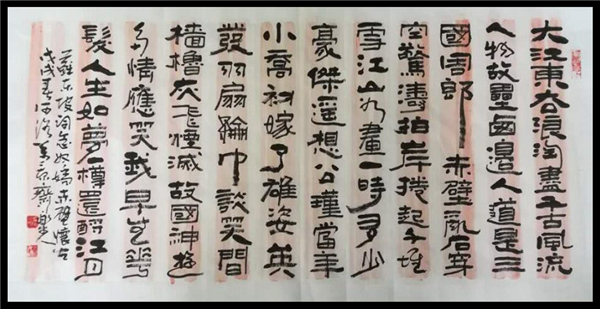 大江東去浪淘盡千古風流
人物故壘西邊人道是三
國周郎赤壁亂石穿
空驚濤拍岸捲起千堆
雪江山如畫一時多少
豪傑遥想公瑾當年
小喬初嫁了雄姿英
發羽扇綸巾談笑間
檣櫓灰飛煙滅故國神遊
多情應笑我早生華
髮人生如夢一樽還酹江月
蘇東坡詞念奴嬌赤壁懷古
戊戌春